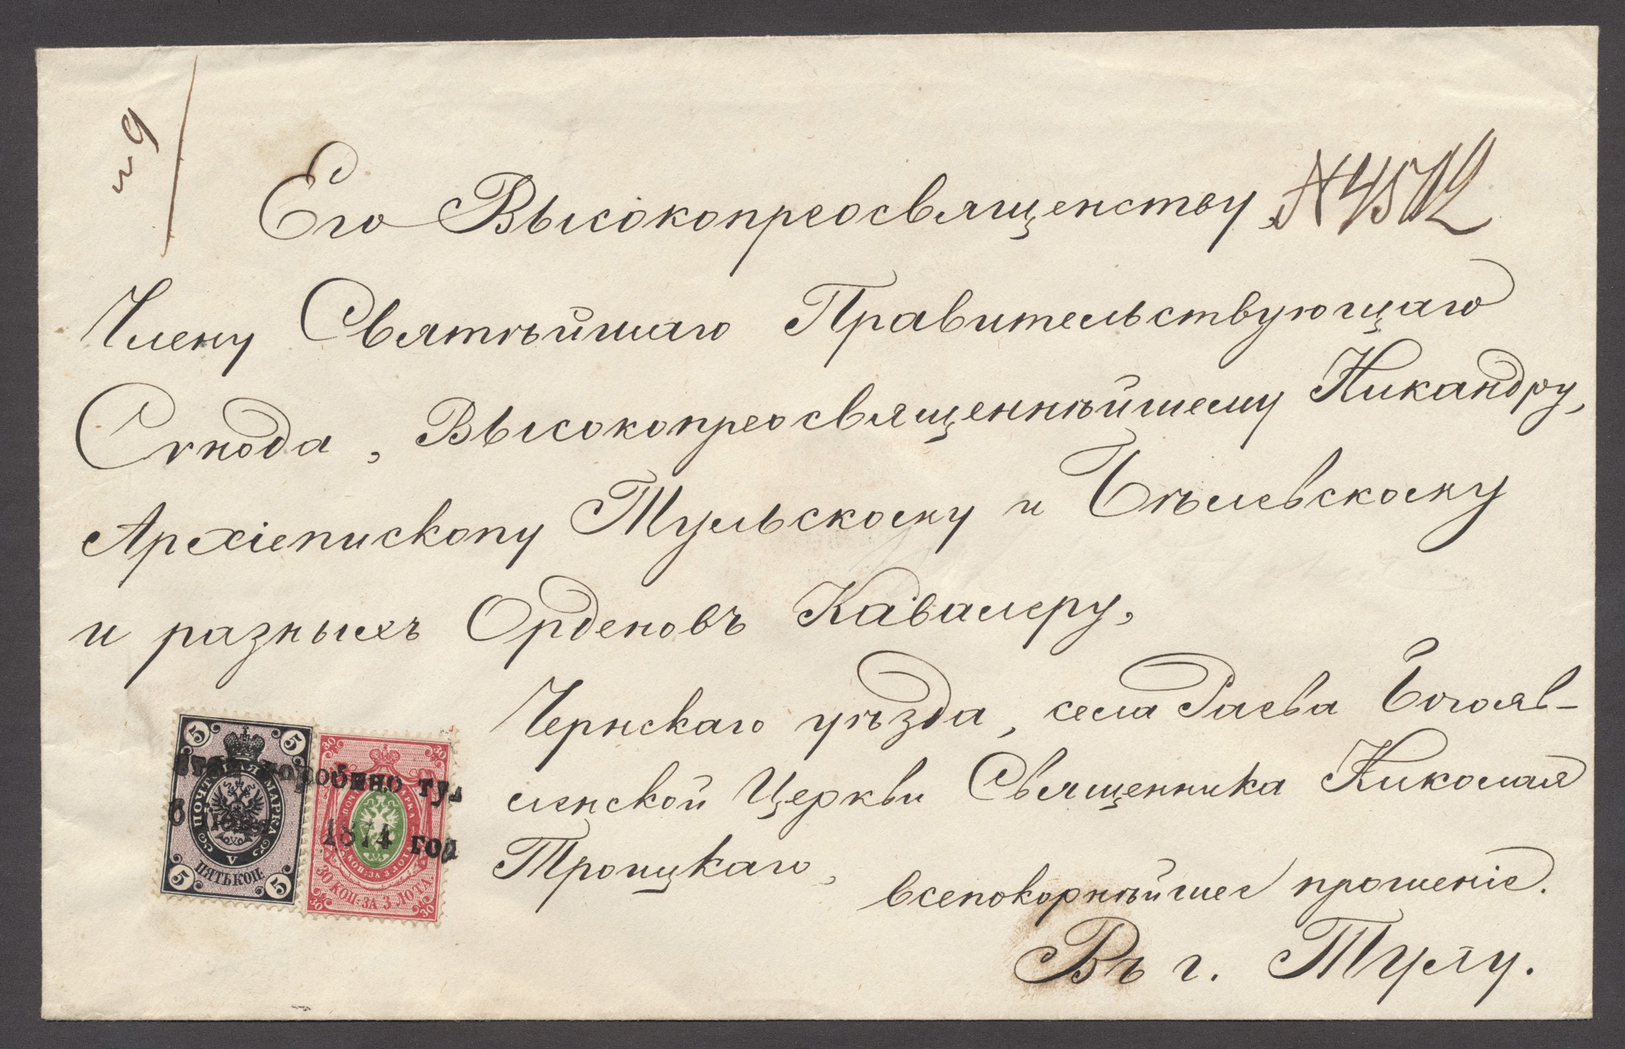 № 9
Его Высокопреосвященству № 4572
Члену Святѣйшаго Правительствующаго
Сѵнода, Высокопреосвященнѣйшему Никандру,
Архіепископу Тульскому и Бѣлевскому
и разныхъ Орденовъ Кавалеру,
Чернскаго уѣзда, села Раева Богояв-
ленской Церкви Священника Николая
Троицкаго,
всепокорнѣйшее прошеніе.
Въ г. Тулу.
5 5
ПОЧТОВАЯ МАРКА
V
ПЯТЬ КОП.
5 5
30 30
30 КОП. ЗА 3 ЛОТА
30 30
тул
1874 год